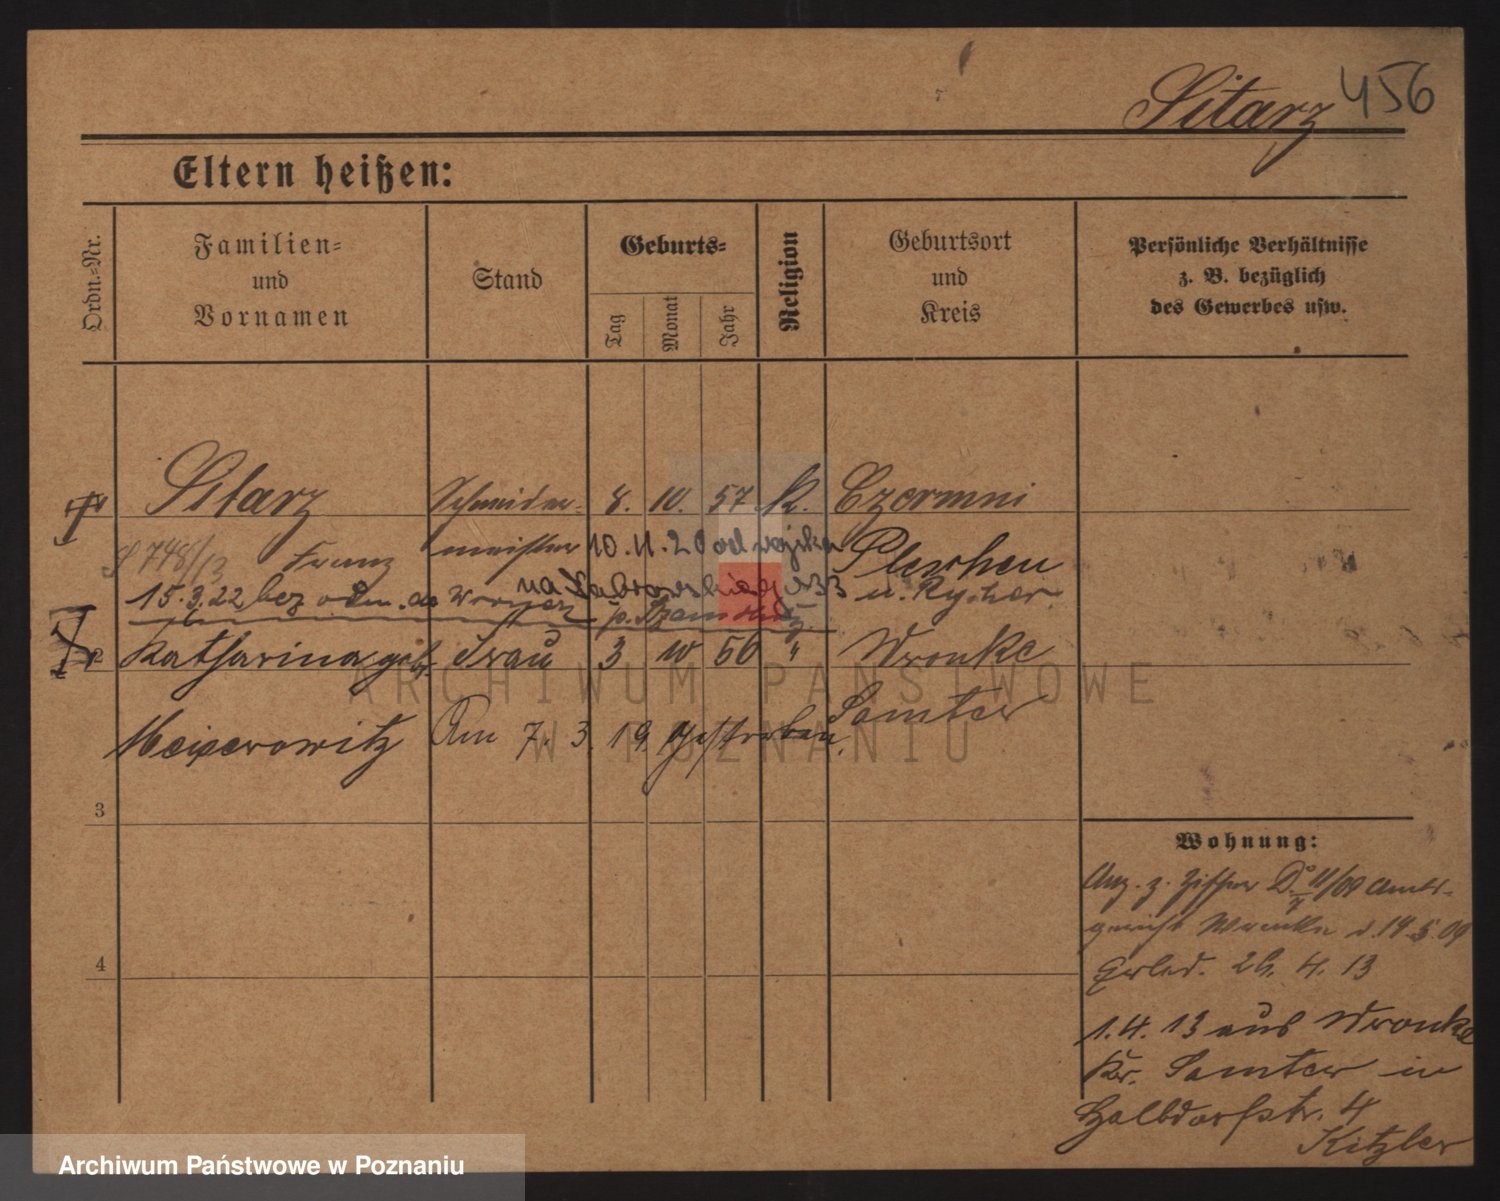 Sitarz 456
Eltern heißen:
Ordn.=Nr.
Familien=
und
Vornamen
Stand
Geburts=
Tag
Monat
Jahr
Religion
Geburtsort
und
Kreis
Persönliche Verhältnisse
z. B. bezüglich
des Gewerbes usw.
Sitarz Schneider- 8. 10. 57 K. Czermni
748/13 Franz meister 10.11.20 od wojska Pleschen
15.3.22 bez odm. do na 33 u.
2 Katharina geb. Frau 3 10 56 " Wronke
Meixerowitz Am 7. 3. 19 gestorben. Samter
3
4
Wohnung:
Anz. z. 11/09 Amts-
gericht Wronke d. 14.5.09
26. 4. 13
1.4.13 aus Wronke
Kr. Samter in
Halbdorfstr. 4
Kitzler
ARCHIWUM PAŃSTWOWE
W POZNANIU
Archiwum Państwowe w Poznaniu